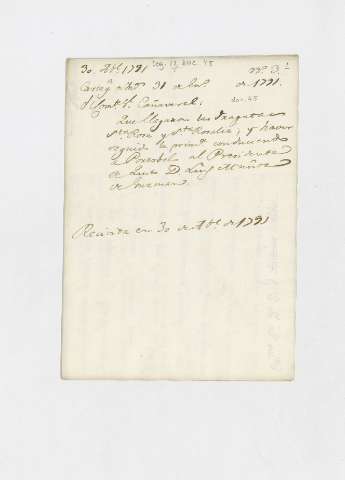 30. Abl. 1791 Leg. 12 doc. 45
nº 3.
Cartagª 31 de 1791.
Cañaveral;
doc. 45
Que llegaron las Fragatas
Stª Rosa y Stª Rosalia; y haver
seguido la primª conduciendo
a Portobelo al Presidente
de Quito D. Luis Muñoz
de Guzman.
Recivida en 30 de Abl. de 1791